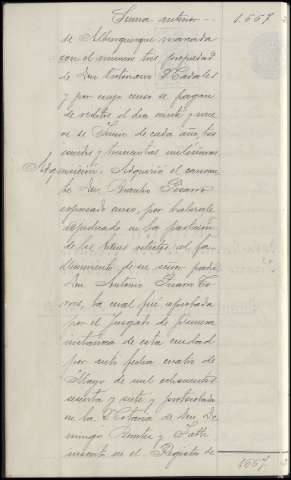 Suma anterior -. 1.667
de Alburquerque marcada
con el numero tres propiedad
de Don Victoriano
y por cuyo censo se pagan
de reditos el dia veinte y nueve
de Junio de cada año, dos
escudos y trescientas milesimas
Adquisicion. Adquirió el causante
Don Benito Pizarro
expresado censo, por haberselo
adjudicado en la particion
de los bienes relictos al fa-
llecimiento de su señor padre
Don Antonio Pizarro
la cual fué aprobada
por el Juzgado de primera
instancia de esta ciudad
por auto fecha cuatro de
Mayo de mil ochocientos
sesenta y siete y protocolada
en la Notaria de Don Do-
mingo Benitez y
inscrita en el Registro de
1667